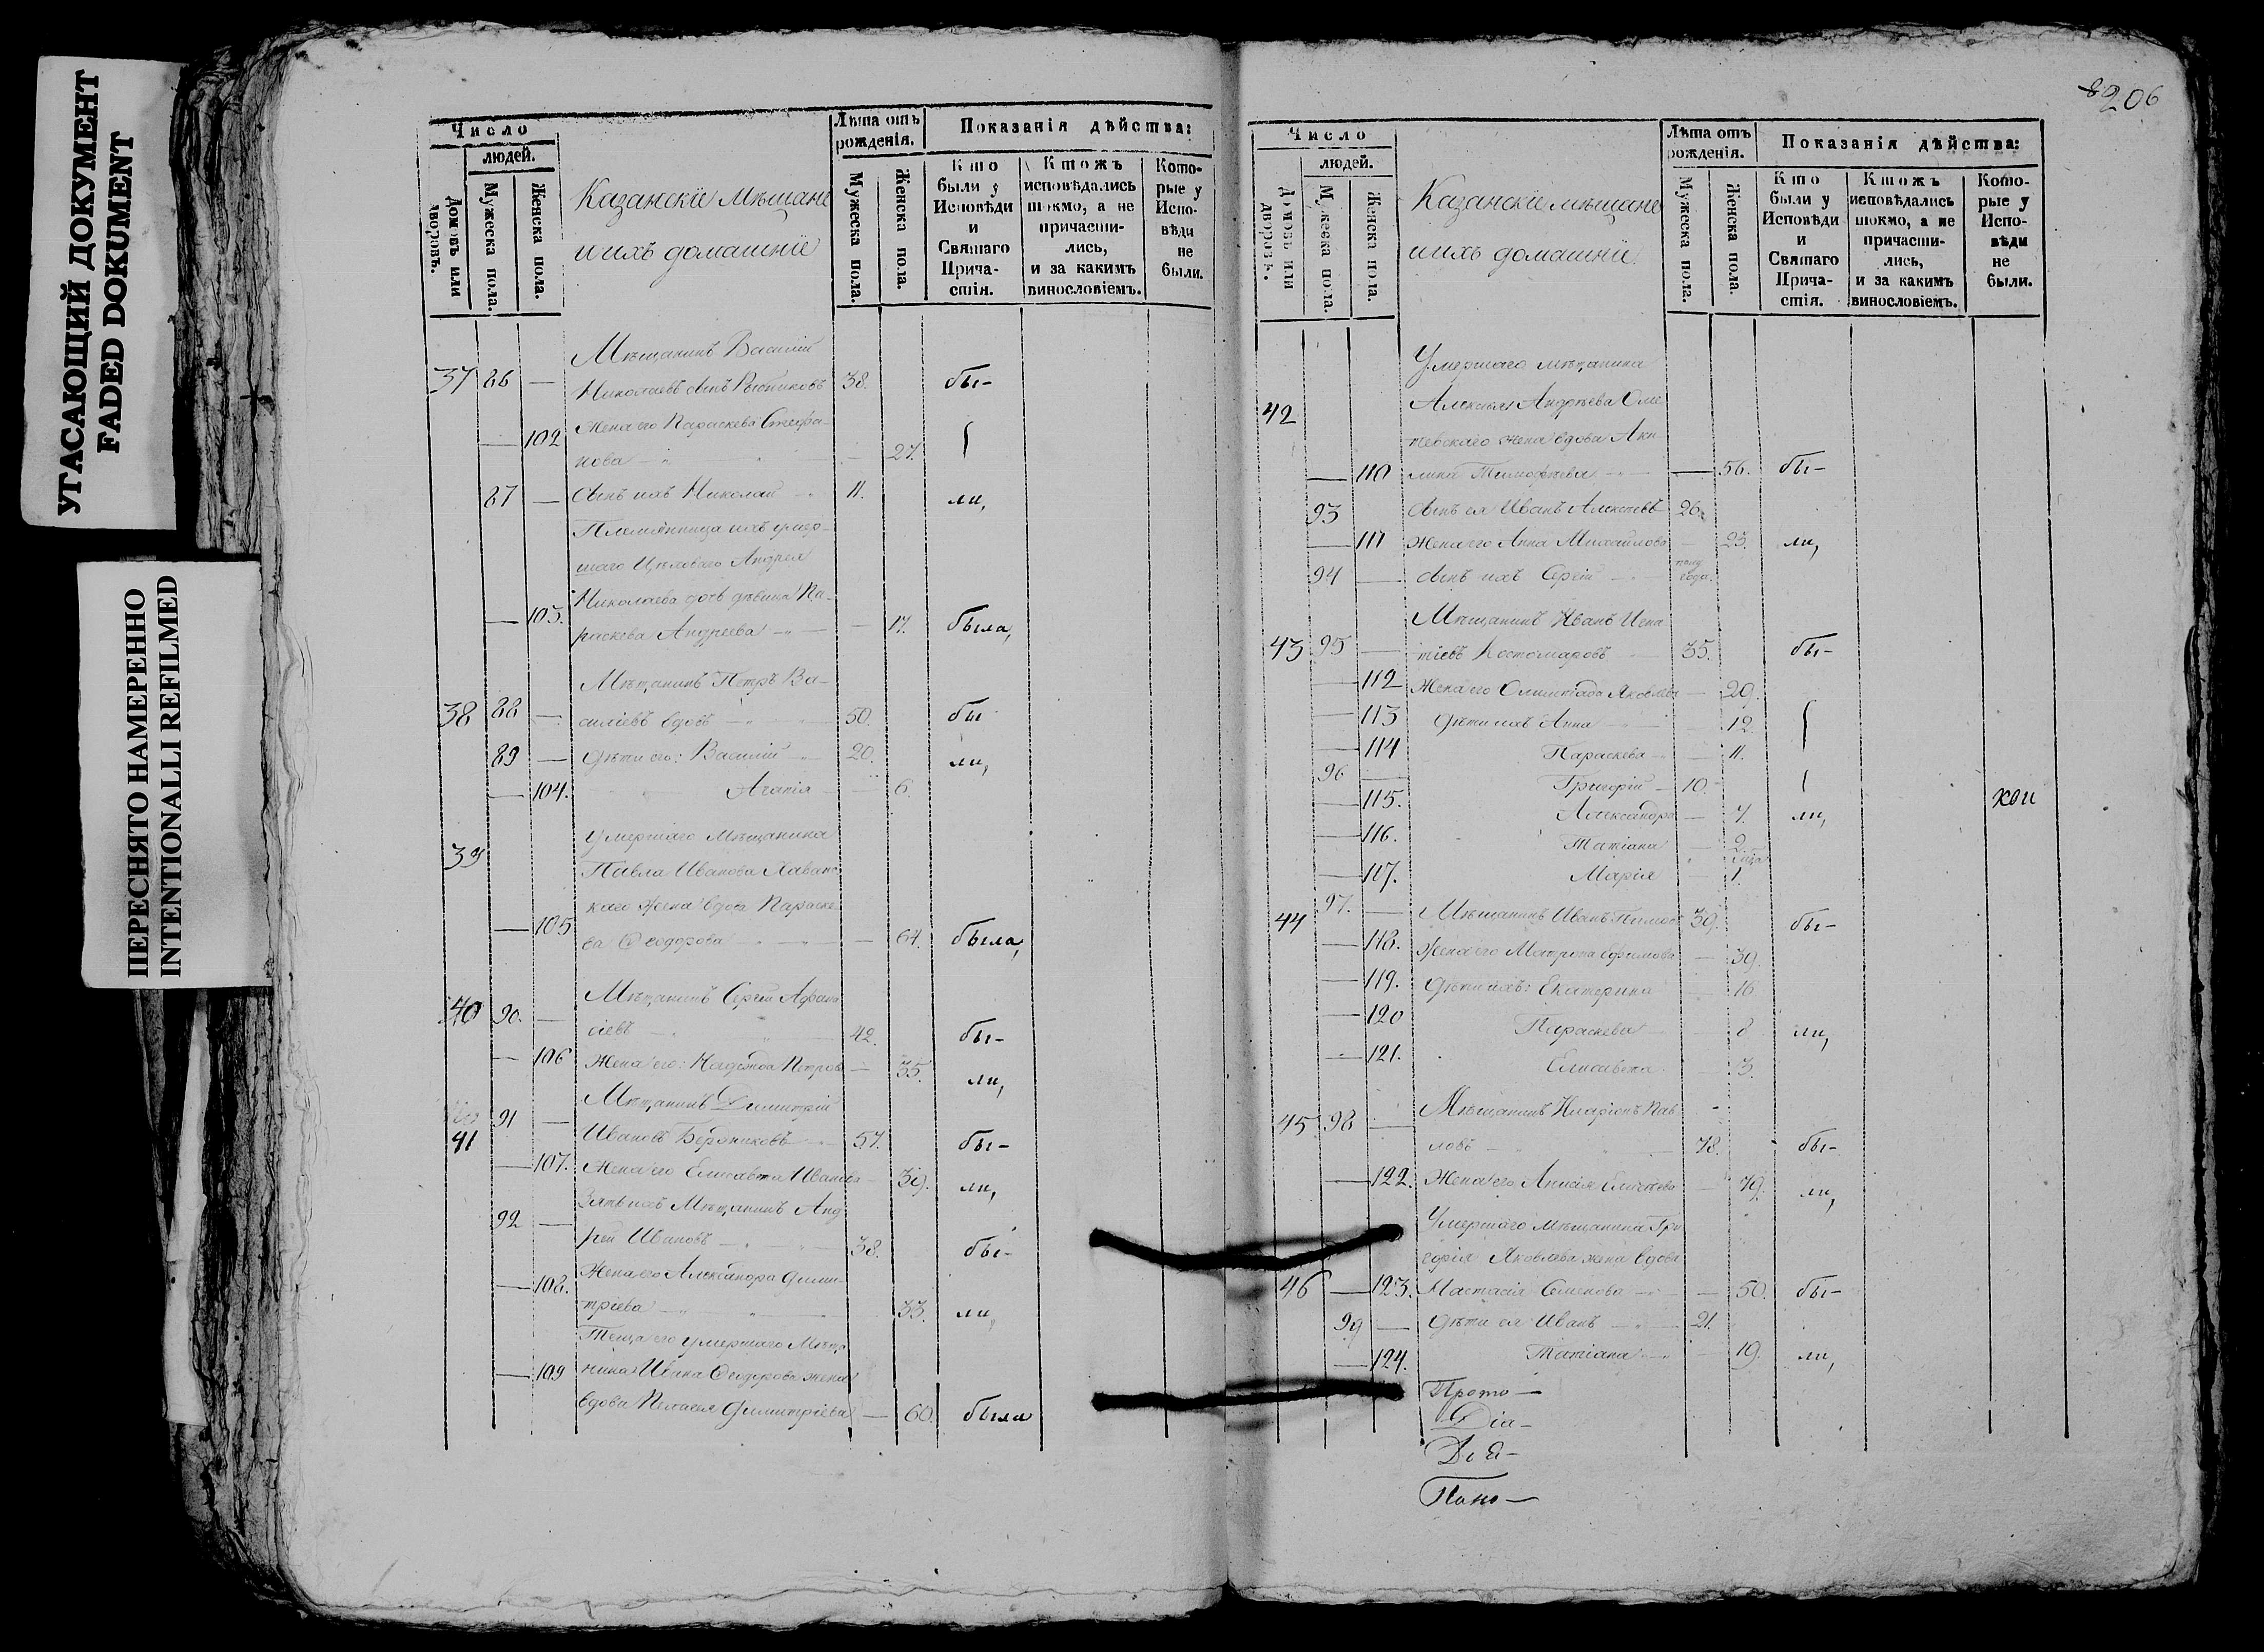 УГАСАЮЩИЙ ДОКУМЕНТ
FADED DOKUMENT
ПЕРЕСНЯТО НАМЕРЕННО
INTENTIONALLI REFILMED
Число
людей.
Домовъ или дворовъ.
Мужеска пола.
Женска пола.
Казанскіе Мѣщане
и ихъ домашніе
Лѣта отъ рожденія.
Мужеска пола.
Женска пола.
Показанія дѣйства:
Кто были у Исповѣди и Святаго Прича-стія.
Ктожъ исповѣдались токмо, а не причасти-лись, и за какимъ винословіемъ.
Кото-рые у Испо-вѣди не были.
Мѣщанинъ Василій
37 86 — Николаевъ сынъ 38. бы-
— 102 Жена его Параскева Стефа-
нова — 27.
87 — Сынъ ихъ Николай 11. ли,
Племянница ихъ умер-
шаго Цеховаго Андрея
Николаева дочь дѣвица Па-
— 103. раскева Андреева — 17. была,
Мѣщанинъ Петръ Ва-
38 88 — силіевъ вдовъ 50. бы
89 — Дѣти его: Василій 20. ли,
— 104. Агапія 6.
39 умершаго Мѣщанина
Павла Иванова
каго жена вдова Параске
— 105 ва Ѳеодорова — 64. была,
Мѣщанинъ Сергѣй Афана
40 90. — сіевъ 42. бы-
— 106 Жена его: Надежда Петров — 35. ли,
Мѣщанинъ Димитрій
41 91 — Ивановъ 57. бы-
— 107. Жена его Елисавета Иванова 39. ли,
Зять ихъ Мѣщанинъ Анд
92 — рей Ивановъ 38. бы-
— 108. Жена его Александра Дими-
тріева 33. ли,
Теща его умершаго Мѣща
— 109 нина Ивана Ѳеодорова жена
вдова Пелагея Димитріева — 60. была
206
Число
людей.
Домовъ или дворовъ.
Мужеска пола.
Женска пола.
Казанскіе мѣщане
и ихъ домашніи.
Лѣта отъ рожденія.
Мужеска пола.
Женска пола.
Показанія дѣйства:
Кто были у Исповѣди и Святаго Прича-стія.
Ктожъ исповѣдались токмо, а не причасти-лись, и за какимъ винословіемъ.
Кото-рые у Испо-вѣди не были.
Умершаго мѣщанина
42 Алексѣя Андреева
жена вдова Аки
— 110 лина Тимофеева — 56. бы-
93 Сынъ ея Иванъ Алексѣевъ 26.
— 111 Жена его Анна Михайлова — 23. ли,
94 — сынъ ихъ Сергій полу года.
Мѣщанинъ Иванъ Игна
43 95 — тіевъ Костомаровъ 35. бы-
— 112 Жена его Олимпіада Яковлева — 29.
— 113 Дѣти ихъ Анна 12.
— 114 Параскева — 11.
96 — Григорій — 10.
— 115. Александра — 7. ли,
— 116. Татіана — 2.
— 117. Марія — 1.
хои
44 97. — Мѣщанинъ Иванъ 39. бы-
— 118. Жена его Матрона Ефимова — 39.
— 119. Дѣти ихъ: Екатерина 16
— 120 Параскева 8 ли,
— 121. Елисавета 3.
45 98 — Мѣщанинъ Иларіонъ Пав
ловъ — 78. бы-
— 122. Жена его Анисія 79. ли,
Умершаго Мѣщанина Гри
горія Яковлева жена вдова
46 — 123. Настасія Семенова — 50. бы-
99 — Дѣти ея Иванъ 21.
— 124. Татіана 19. ли,
Прото—
Діа—
Поно—